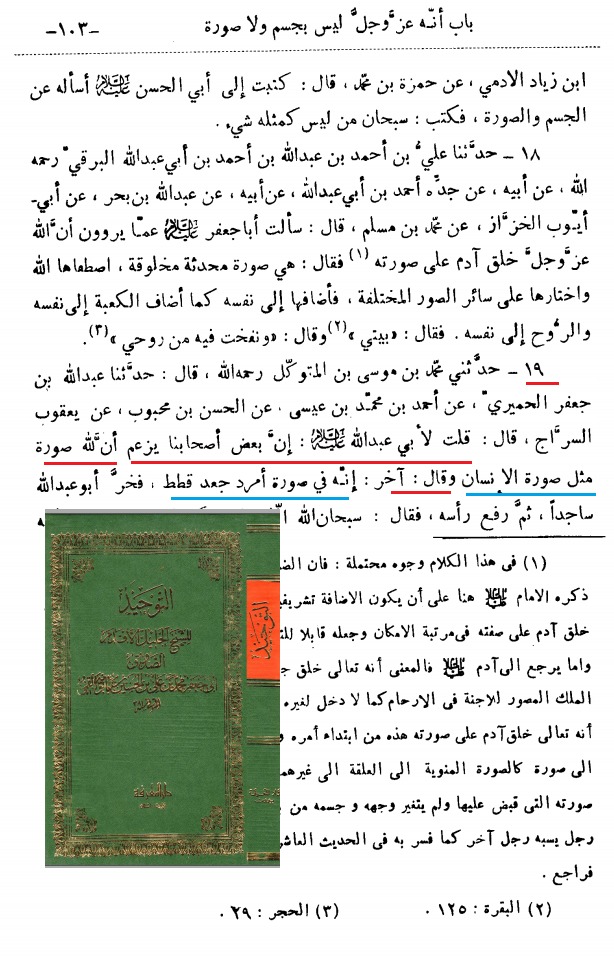 باب أنّه عزَّوجلَّ ليس بجسم ولا صورة
-١٠٣-
ابن زياد الادمي ، عن حمزة بن محمد ، قال : كتبت إلى أبي الحسن عليه السلام أسأله عن
الجسم والصورة ، فكتب : سبحان من ليس كمثله شيء .
١٨ ــ حدَّثنا عليُّ بن أحمد بن عبدالله بن أحمد بن أبي عبدالله البرقيّ رحمه
الله ، عن أبيه ، عن جدِّه أحمد بن أبي عبدالله ، عن أبيه ، عن عبدالله بن بحر ، عن أبي-
أيّوب الخزَّاز ، عن محمّد بن مسلم ، قال : سألت أبا جعفر عليه السلام عمّا يروون أنَّ الله
عزَّوجلَّ خلق آدم على صورته (١) فقال : هي صورة محدثة مخلوقة ، اصطفاها الله
واختارها على سائر الصور المختلفة ، فأضافها إلى نفسه كما أضاف الكعبة إلى نفسه
والرُّوح إلى نفسه . فقال : «بيتي »(٢) وقال : «ونفخت فيه من روحي »(٣).
١٩ ــ حدَّثني محمّد بن موسى بن المتوكّل رحمه الله ، قال : حدَّثنا عبدالله بن
جعفر الحميريّ ، عن أحمد بن محمّد بن عيسى ، عن الحسن بن محبوب ، عن يعقوب
السرَّاج ، قال : قلت لأبي عبدالله عليه السلام : إنَّ بعض أصحابنا يزعم أنَّ لله صورة
مثل صورة الإنسان وقال : آخر : إنّه في صورة أمرد جعد قطط ، فخرَّ أبو عبدالله
ساجداً ، ثمَّ رفع رأسه ، فقال : سبحان الله
(١) فى هذا الكلام وجوه محتملة : فان
ذكره الامام عليه السلام هنا على أن يكون الاضافة
خلق آدم على صفته فى مرتبة الامكان وجعله قابلا
واما يرجع الى آدم عليه السلام فالمعنى أنه تعالى خلق
الملك المصور للاجنة فى الارحام كما لا دخل لغيره
أنه تعالى خلق آدم على صورته هذه من ابتداء أمره
الى صورة كالصورة المنوية الى العلقة الى غيرهما
صورته التى قبض عليها ولم يتغير وجهه و جسمه من
رجل يسبه رجل آخر كما فسر به فى الحديث
فراجع .
(٢) البقرة : ١٢٥ .
(٣) الحجر : ٢٩ .
التوحيد
للشيخ الجليل الأقدم
الصدوق
التوحيد